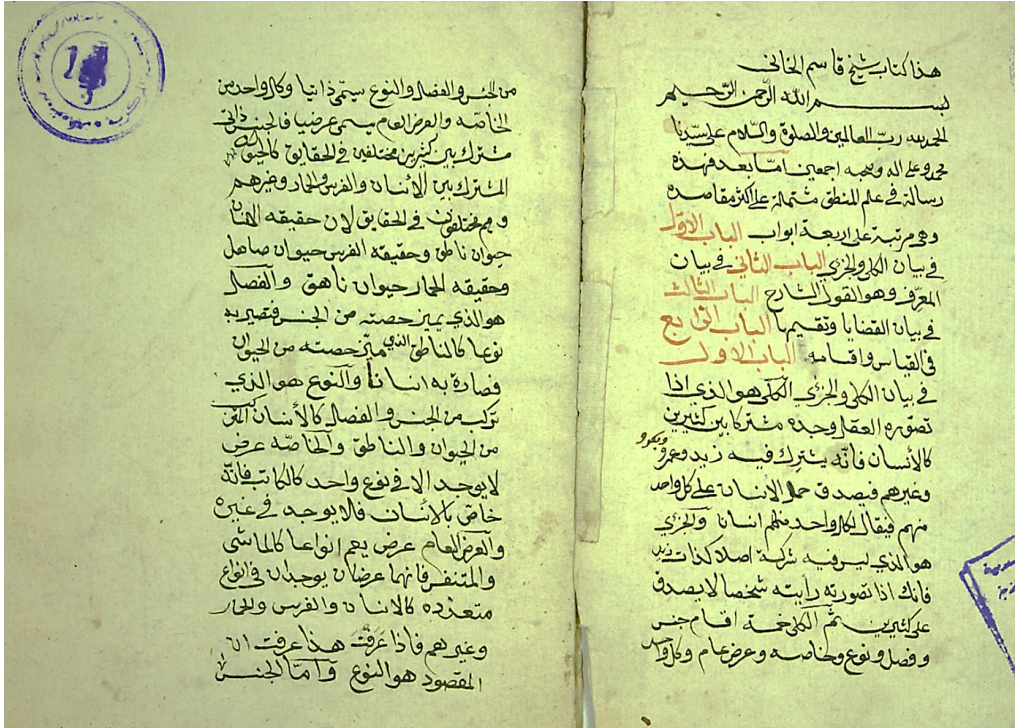 هذا كتاب شيخ قاسم الخانى
بسم الله الرحمن الرحيم
الحمد لله رب العالمين والصلوة والسلام على سيدنا
محمد وعلى اله وصحبه اجمعين امّا بعد فهذه
رسالة فى علم المنطق مشتملة على اكثر مقاصده
وهى مرتبة على اربعة ابواب الباب الاوّل
فى بيان الكلى والجزئى الباب الثانى فى بيان
المعرّف وهو القول الشارح الباب الثالث
فى بيان القضايا وتقسيمها الباب الرّابع
فى القياس واقسامه الباب الاول
فى بيان الكلى والجزئى الكلى هو الذي اذا
تصوّره العقل وحده مشتركا بين كثيرين
كالأنسان فانّه يشترك فيه زيد وعمرو وبكر و
وغيرهم فيصدق حمل الانسان على كل واحد
منهم فيقال لكل واحد منهم انسانا والجزئى
هو الذي ليس فيه شركة اصلا كذات زيد
فانك اذا تصورته رأيته شخصا لا يصدق
على كثيرين ثم الكلى خمسة اقسام جنس
وفصل ونوع وخاصه وعرض عام وكل واحد
من الجنس والفصل والنوع سيتمى ذاتيا وكل واحد من
الخاصه والعرض العام يسمى عرضيا فالجنس ذاتى
مشترك بين كثيرين مختلفين فى الحقايق كالحيوان
المشترك بين الأنسان والفرس والحمار وغيرهم
وهم مختلفون فى الحقايق لان حقيقه الانسان
حيوان ناطق وحقيقه الفرس حيوان صاهل
وحقيقه الحمار حيوان ناهق والفصل
هو الذي يميز حصته من الجنس فتصير به
نوعا كالناطق الذي ميّز حصته من الحيوان
فصارة به انسانا والنوع هو الذي
تركب من الجنس والفصل كالأنسان المركب
من الحيوان والناطق والخاصّه عرض
لا يوجد الا فى نوع واحد كالكاتب فانّه
خاصّ بالأنسان فلا يوجد فى غيره
والعرض العام عرض يعم انواعا كالماشى
والمتنفس فانهما عرضان يوجدان فى انواع
متعدّده كالانسان والفرس والحمار
وغيرهم فاذا عَرَفْتَ هذا عرفت ان
المقصود هو النوع وامّا الجنس